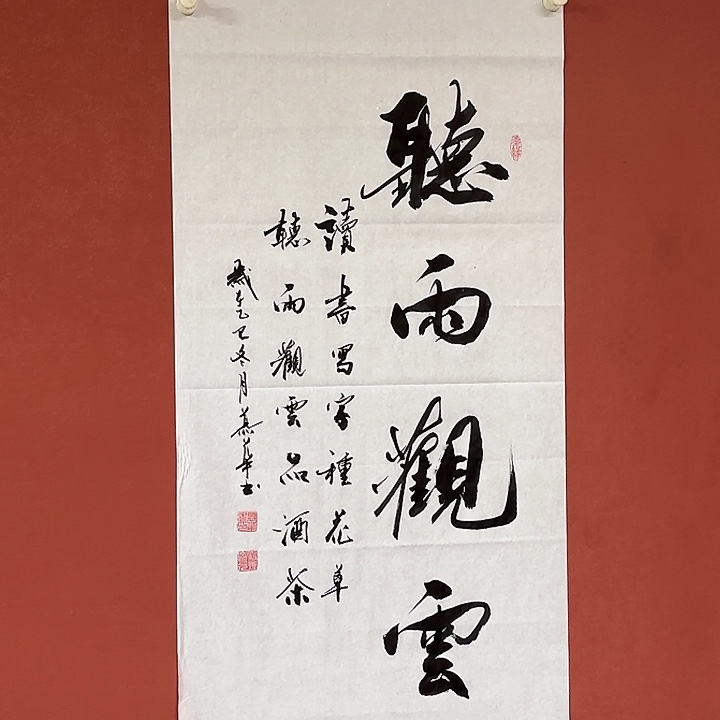 聽雨觀雲
讀書寫字種花草
聽雨觀雲品酒茶
歲在乙巳冬月慕華書